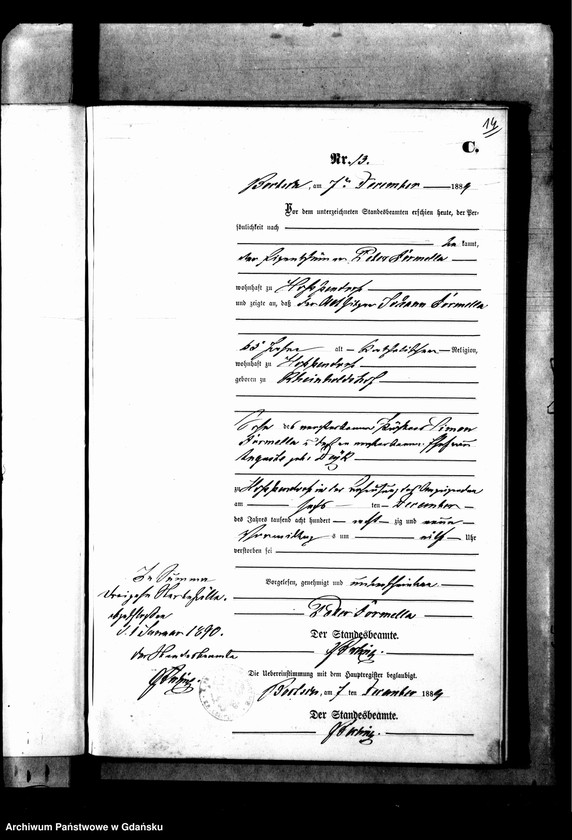 14
C.
Nr. 13.
am 7ten December 1889
Vor dem unterzeichneten Standesbeamten erschien heute, der Per-
sönlichkeit nach
kannt,
der Eigenthümer Peter Formella
wohnhaft zu Hoppendorf
und zeigte an, daß der Altsitzer Johann Formella
Jahre alt Katholischer Religion,
wohnhaft zu Hoppendorf
geboren zu
Sohn des verstorbenen Simon
Formella und dessen verstorbenen Ehefrau
geb.
zu Hoppendorf in der Behausung des Anzeigenden
am sechs ten December
des Jahres tausend acht hundert acht zig und neun
Vormittags um Uhr
verstorben sei
Vorgelesen, genehmigt und unterschrieben
Peter Formella
Der Standesbeamte.
Die Uebereinstimmung mit dem Hauptregister beglaubigt.
am 7 ten December 1889
Der Standesbeamte.
In Summa
dreizehn Sterbefälle.
abgeschlossen
d. 1 Januar 1890.
der Standesbeamte
Archiwum Państwowe w Gdańsku